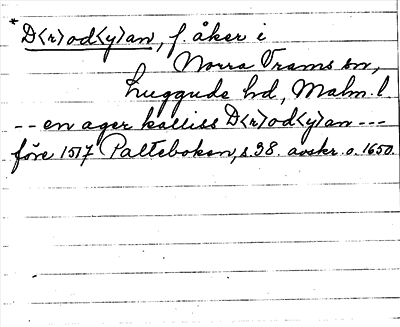 *D<r>od<y>an, f. åker i
Norra Frams sn,
Luggude hd, Malm. l.
-- en ager kalliss D<r>od<y>an ---
före 1517 Palteboken, s. 98. avskr. o. 1650.